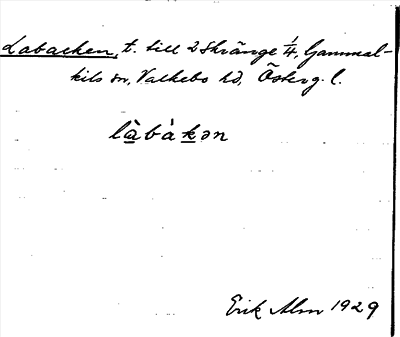 Labacken, t. till 2 Skränge 1/4, Gammal-
kils sn, Valkebo hd, Österg. l.
làbàkən
Erik Alm 1929